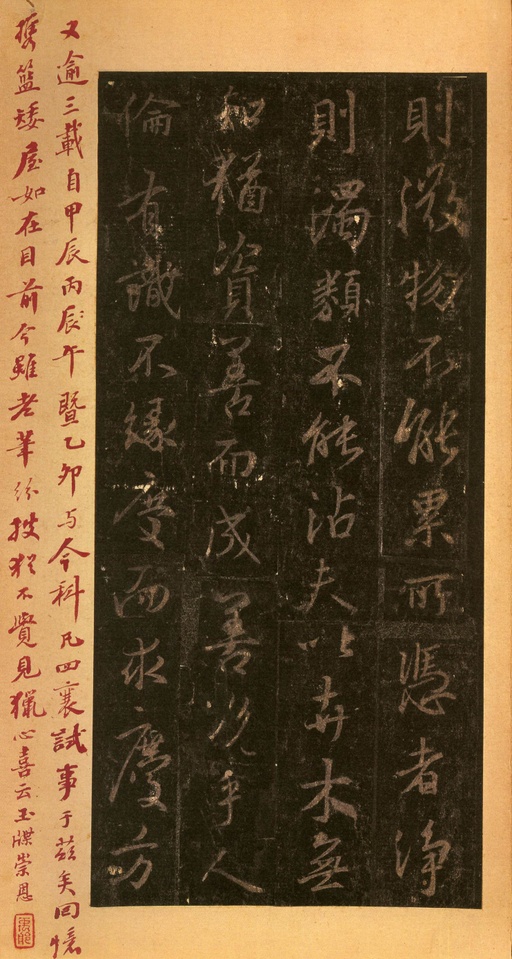 則微物不能累所憑者淨
則濁類不能沾夫以卉木無
知猶資善而成善況乎人
倫有識不緣慶而求慶方
又逾三載自甲辰丙辰午暨乙卯与今科凡四襄試事于茲矣回憶
攜籃矮屋如在目前今雖老筆紛披猶不覺見獵心喜云玉牒崇恩